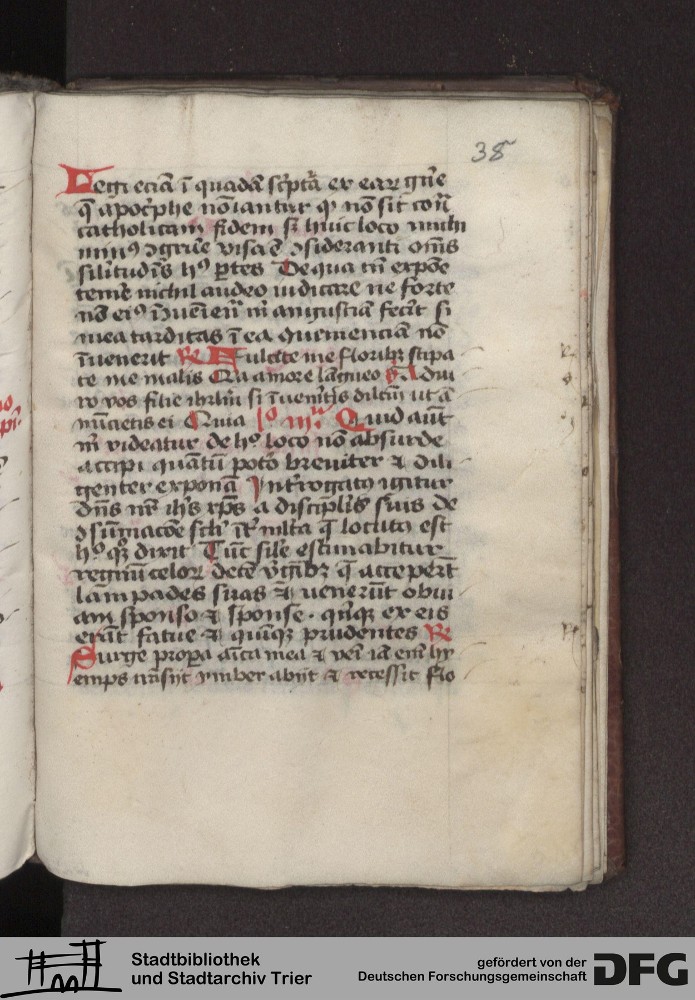 38
Legi eciā ī quadā sc̄ptā ex eaꝝ gn̄e
q̄ apoc̄phe nōīantur ꝙ nō sit cōn̄
catholicam fidem si huic loco michi
min9 ↄgrue visa ē ↄsideranti om̄s
silitudīs h9 ptes De qua tn̄ expōe
teme nichil audeo iudicare ne forte
nō ei9 īueniēti m̄ angustiā fecit si
mea tarditas ī ea quemenciam nō
īuenerit R̄ Fulcite me floribꝫ stipa
te me malis Q̄a amore lāgueo Adiu
ro vos filie ihrl̄m si īuenitis dilc̄m ut ā
nūcietis ei Quia lo iiia Quid aūt
m̄ videatur de h° loco nō absurde
accipi quātū potō breviter ⁊ dili
genter exponā Int̄rogatꝰ igitur
dn̄s nr̄ ih̄s xp̄s a discipulis suis de
ↄsūmacōe sc̄li īt̄ mlta q̄ locutꝰ est
h° qꝫ dixit Tūc sile estimabitur
regnū celoꝝ decē vginibꝫ q̄ accepert̄
lāmpades suas ⁊ venerūt obvi
am sponso ⁊ sponse. qn̄qꝫ ex eis
erāt fatue ⁊ quīqꝫ prudentes R̄
Surge propa aīca mea ⁊ veī iā eīn̄ hy
emps trāsiit ymber abiit ⁊ recessit flo
Stadtbibliothek
und Stadtarchiv Trier
gefördert von der
Deutschen Forschungsgemeinschaft DFG